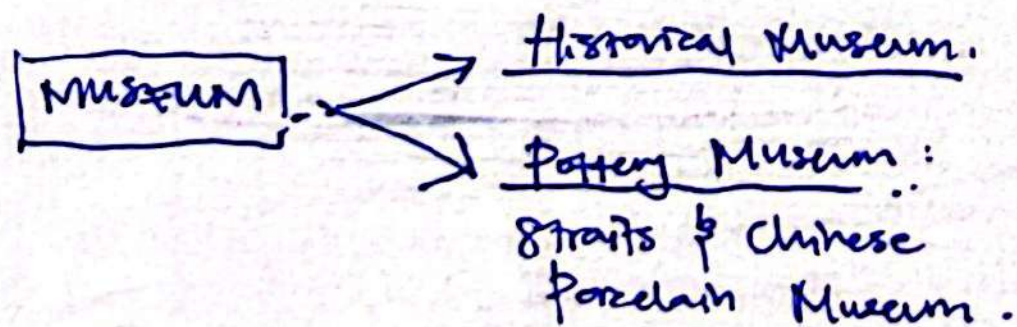 Historical Museum.
MUSEUM
Pottery Museum:
Straits & Chinese
Porcelain Museum.